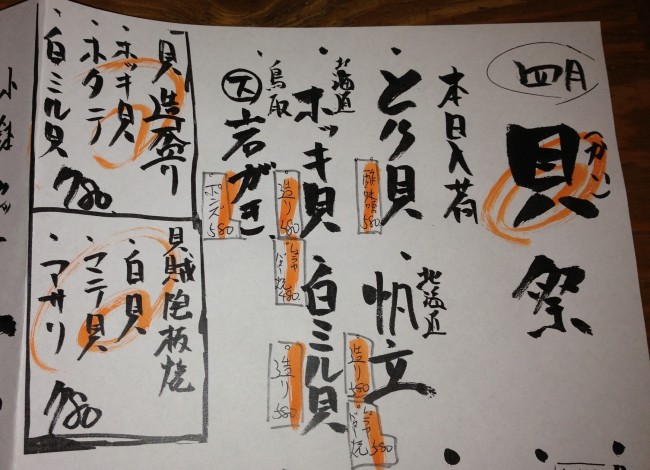 四月
貝(かい)祭
本日入荷
・とり貝
酢味噌580
北海道
・帆立
造り580
バター焼580
北海道
・ホッキ貝
造り580
バター焼480
・白ミル貝
造り580
鳥取
・岩がき
ポンズ580
貝造盛り
・ホッキ貝
・ホタテ
・白ミル貝
780
貝賊陶板焼
・白貝
・マテ貝
・アサリ
780